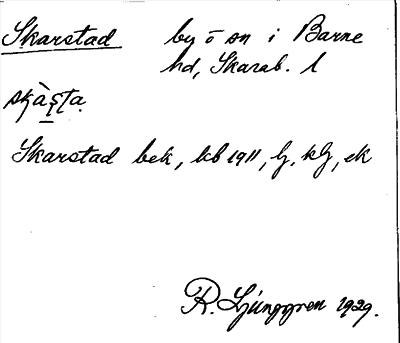 Skarstad by o sn i Barne
hd, Skarab. l
skàsta
Skarstad bek, kb 1911, lj, klj, ek
R. Ljunggren 1929.